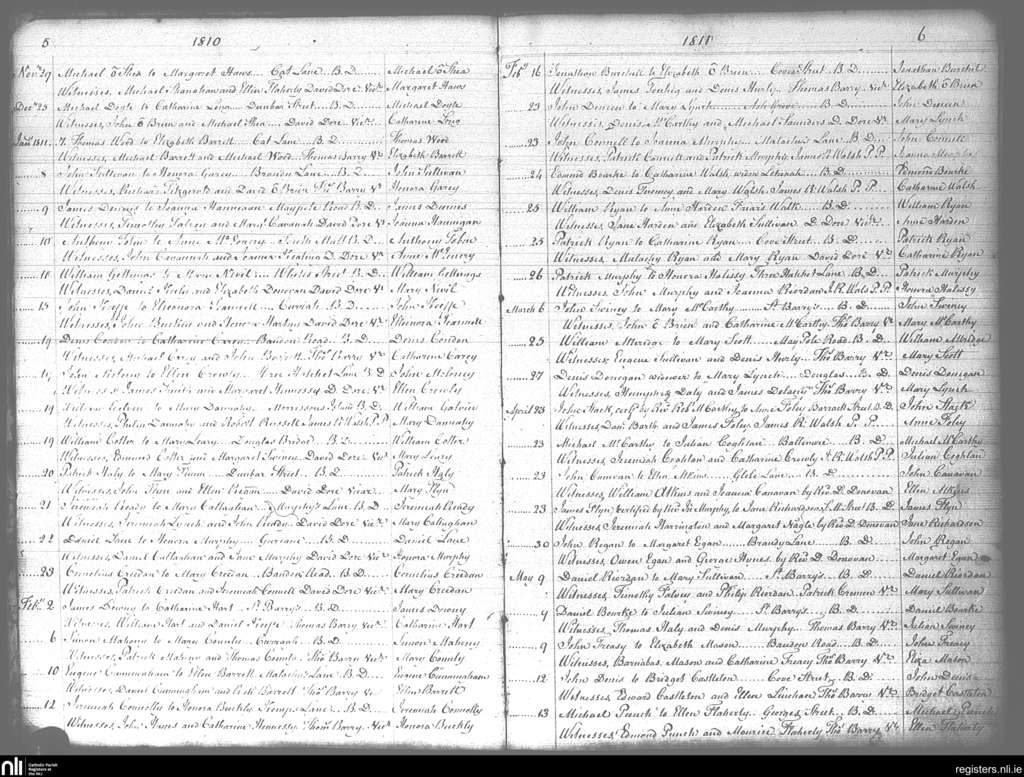 5 1810
Nov.r 29 Michael O Shea to Margaret Haws... Cat Lane. B.D. Michael O Shea
Witnesses, Michael Shanahan and Ellen Flaherty David Dore Vic.r Margaret Haws
Dec.r 23 Michael Doyle to Catharine Long... Dunbar Street... B.D. Michael Doyle
Witnesses, John O Brien and Michael Shea... David Dore Vic.r Catharine Long
Jan.y 1811. 7. Thomas Word to Elizabeth Barrett Cat Lane... B.D. Thomas Word
Witnesses, Michael Barrett and Michael Word. Thomas Barry V.r Elizabeth Barrett
8 John Sullivan to Honora Garey... Lane... B.D. John Sullivan
Witnesses, Richard Fitzgerald and David O Brien Tho.s Barry V.r Honora Garey
9 James to Joanna Hannegan Maypole Road B.D. James
Witnesses, Timothy and Mary Cavanah David Dore V.r Joanna Hannigan
10 Anthony to Anne M.cEnery... South Mall B.D. Anthony
Witnesses, John Cavannah and Joanna D. Dore V.r Anne M.cEnery
10 William Gollings to Mary Nevil... Street B.D. William Gollings
Witnesses, Daniel and Elizabeth Donovan David Dore V.r Mary Nevil
15 John Keeffe to Eleonora Scannell... B.D. John Keeffe
Witnesses, John and Honora David Dore V.r Eleonora Scannell
19 Denis Condon to Catharine Carey... Bandon Road. B.D. Denis Condon
Witnesses, Michael Carey and John Barrett Tho.s Barry V.r Catharine Carey
John to Ellen Crowly... Lane B.D. John
Witnesses James and Margaret Hennessy D. Dore V.r Ellen Crowly
19 William Galvin to Mary Dannahy... Morrissons Island B.D. William Galvin
Witnesses, Philip Dannahy and Robert Russell James R. Walsh P.P. Mary Dannahy
19 William Cotter to Mary Leary... Douglas Bridge B.D. William Cotter
Witnesses, Edmond Cotter and Margaret Swiney David Dore Vic.r Mary Leary
20 Patrick Haly to Mary Flynn... Dunbar Street... B.D. Patrick Haly
Witnesses, John Flynn and Ellen David Dore Vicar... Mary Flyn
21 Jeremiah Ready to Mary Callaghan... Murphy's Lane. B.D. Jeremiah Ready
Witnesses, Jeremiah Lynch and John Ready. David Dore Vic.r Mary Callaghan
22 Daniel Lane to Honora Murphy... B.D. Daniel Lane
Witnesses, Daniel Callaghan and Jane Murphy David Dore Vic.r Honora Murphy
23 Cornelius Creedan to Mary Creedan Bandon Road. B.D. Cornelius Creedan
Witnesses, Patrick Creedan and Jeremiah Connell David Dore Vic.r Mary Creedan
Feb.y 2 James Downy to Catharine Hart... S.t Barry's... B.D. James Downy
Witnesses, William Hart and Daniel Keeffe Thomas Barry Vic.r Catharine Hart
6 Simon Mahony to Mary Counly... B.D. Simon Mahony
Witnesses, Patrick Mahony and Thomas Counly. Tho.s Barry Vic.r Mary Counly
10 Eugene Cunningham to Ellen Barrett Malachy's Lane. B.D. Eugene Cunningham
Witnesses, Daniel Cunningham and Barrett Tho.s Barry V.r Ellen Barrett
12 Jeremiah Connolly to Honora Buckly Lane... B.D. Jeremiah Connolly
Witnesses, John and Catharine Hennessy Tho.s Barry Vic.r Honora Buckly
1811 6
Feb.y 16 Jonathan Burchill to Elizabeth O Brien... Cove Street. B.D. Jonathan Burchil
Witnesses, James and Denis Hurly. Thomas Barry Vic.r Elizabeth O Brien
23 John Dineen to Mary Lynch... Ash Grove... B.D. John Dineen
Witnesses, Denis M.cCarthy and Michael Saunders D. Dore V.r Mary Lynch
23 John Connell to Joanna Murphy... Malachy's Lane. B.D. John Connell
Witnesses, Patrick Connell and Patrick Murphy. James R. Walsh P.P. Joanna Murphy
24 Edmond Bourke to Catharine Walsh widow B.D. Edmond Bourke
Witnesses, Denis Twomey and Mary Walsh. James R. Walsh P.P. Catharine Walsh
25 William Ryan to Anne Harden Friars Walk... B.D. William Ryan
Witnesses, Jane Harden and Elizabeth Sullivan D. Dore Vic.r Anne Harden
25 Patrick Ryan to Catharine Ryan... Cove Street... B.D. Patrick Ryan
Witnesses, Malachy Ryan and Mary Ryan David Dore V.r Catharine Ryan
26 Patrick Murphy to Honora Halissy Three Hatchet Lane. B.D. Patrick Murphy
Witnesses, John Murphy and Joanna Riordan J. R. Wals P.P. Honora Halissy
March 6 John Swiney to Mary M.cCarthy... S.t Barry's... B.D. John Swiney
Witnesses, John O Brien and Catharine M.cCarthy, Tho.s Barry V.r Mary M.cCarthy
25 William Attridge to Mary Scott... May Pole Road B.D. William Attridge
Witnesses, Eugene Sullivan and Denis Hurly... Tho.s Barry V.r Mary Scott
27 Denis Donegan widower to Mary Lynch... Douglas... B.D. Denis Donegan
Witnesses, Humphry Daly and James Delacy Tho.s Barry V.r Mary Lynch
April 23 John Stack, cert.d by Rev.d Rob.t M.cCarthy, to Anne Foley Barrack Street B.D. John Stack
Witnesses, Dan.l Barth and James Foley, James R. Walsh P.P. Anne Foley
23 Michael M.cCarthy to Julian Coghlan Baltimore... B.D. Michael M.cCarthy
Witnesses, Jeremiah Coghlan and Catharine Crowly J. R. Walsh P.P. Julian Coghlan
23 John Canavan to Ellen Atkins... Glebe Lane... B.D. John Canavan
Witnesses, William Atkins and Joanna Canavan by Rev.d D. Donovan Ellen Atkins
23 James Flyn, certified by Rev.d Murphy, to Jane Richardson, Street B.D. James Flyn
Witnesses, Jeremiah Harrington and Margaret Nagle by Rev.d D. Donovan Jane Richardson
30 John Regan to Margaret Egan... Brandy Lane... B.D. John Regan
Witnesses, Owen Egan and George Hynes. by Rev.d D. Donovan. Margaret Egan
May 9 Daniel Riordan to Mary Sullivan... S.t Barry's... B.D. Daniel Riordan
Witnesses, Timothy and Philip Riordan Patrick Cremen V.r Mary Sullivan
9 Daniel Bourke to Julian Swiney... S.t Barry's... B.D. Daniel Bourke
Witnesses, Thomas Haly and Denis Murphy... Thomas Barry V.r Julian Swiney
9 John Treasy to Elizabeth Mason... Bandon Road... B.D. John Treasy
Witnesses, Barnabas Mason and Catharine Treacy Tho.s Barry V.r Eliza Mason
12 John Denis to Bridget Castleton... Cove Street. B.D. John Denis
Witnesses, Edward Castleton and Ellen Linehan Tho.s Barry V.r Bridget Castleton
13 Michael Punch to Ellen Flaherty... Georges Street... B.D. Michael Punch
Witnesses, Edmond Punch and Maurice Flaherty Tho.s Barry V.r Ellen Flaherty
nli Catholic Parish
Registers at
the NLI
registers.nli.ie